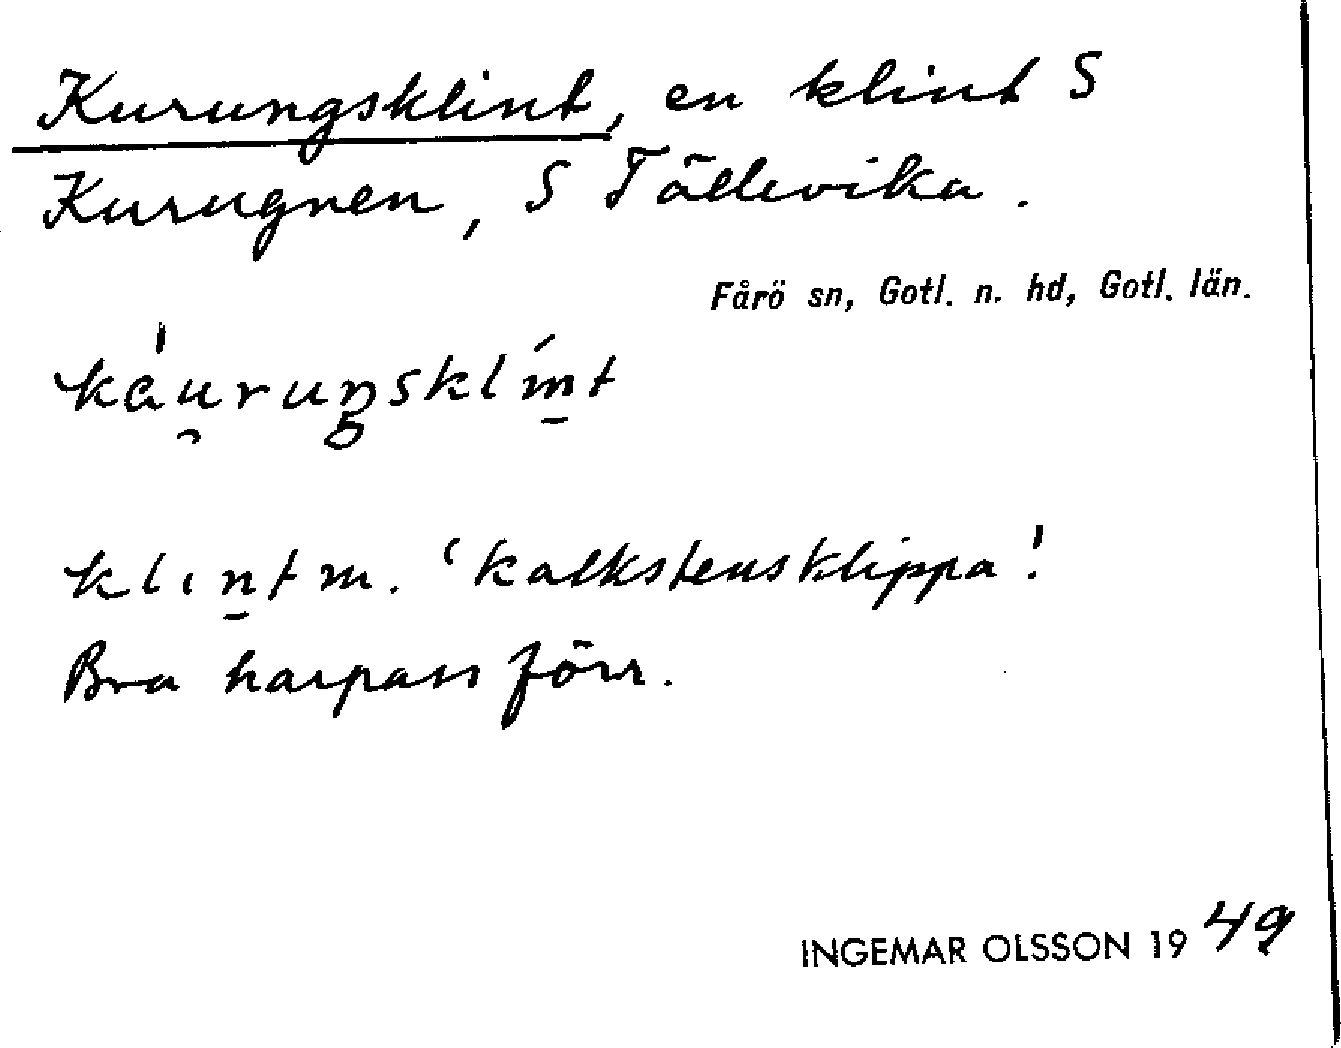 Kurungsklint, en klint S
Kurugnen, S Tällevika.
Fårö sn, Gotl. n. hd, Gotl. län.
káu̯ruŋsklín̠t
klın̠t m. 'kalkstensklippa'.
Bra harpass förr.
INGEMAR OLSSON 1949